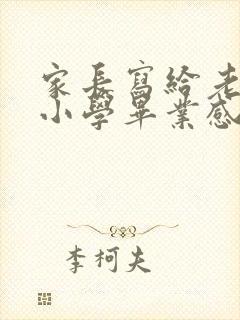 家長寫給老
小學畢業感
李柯夫